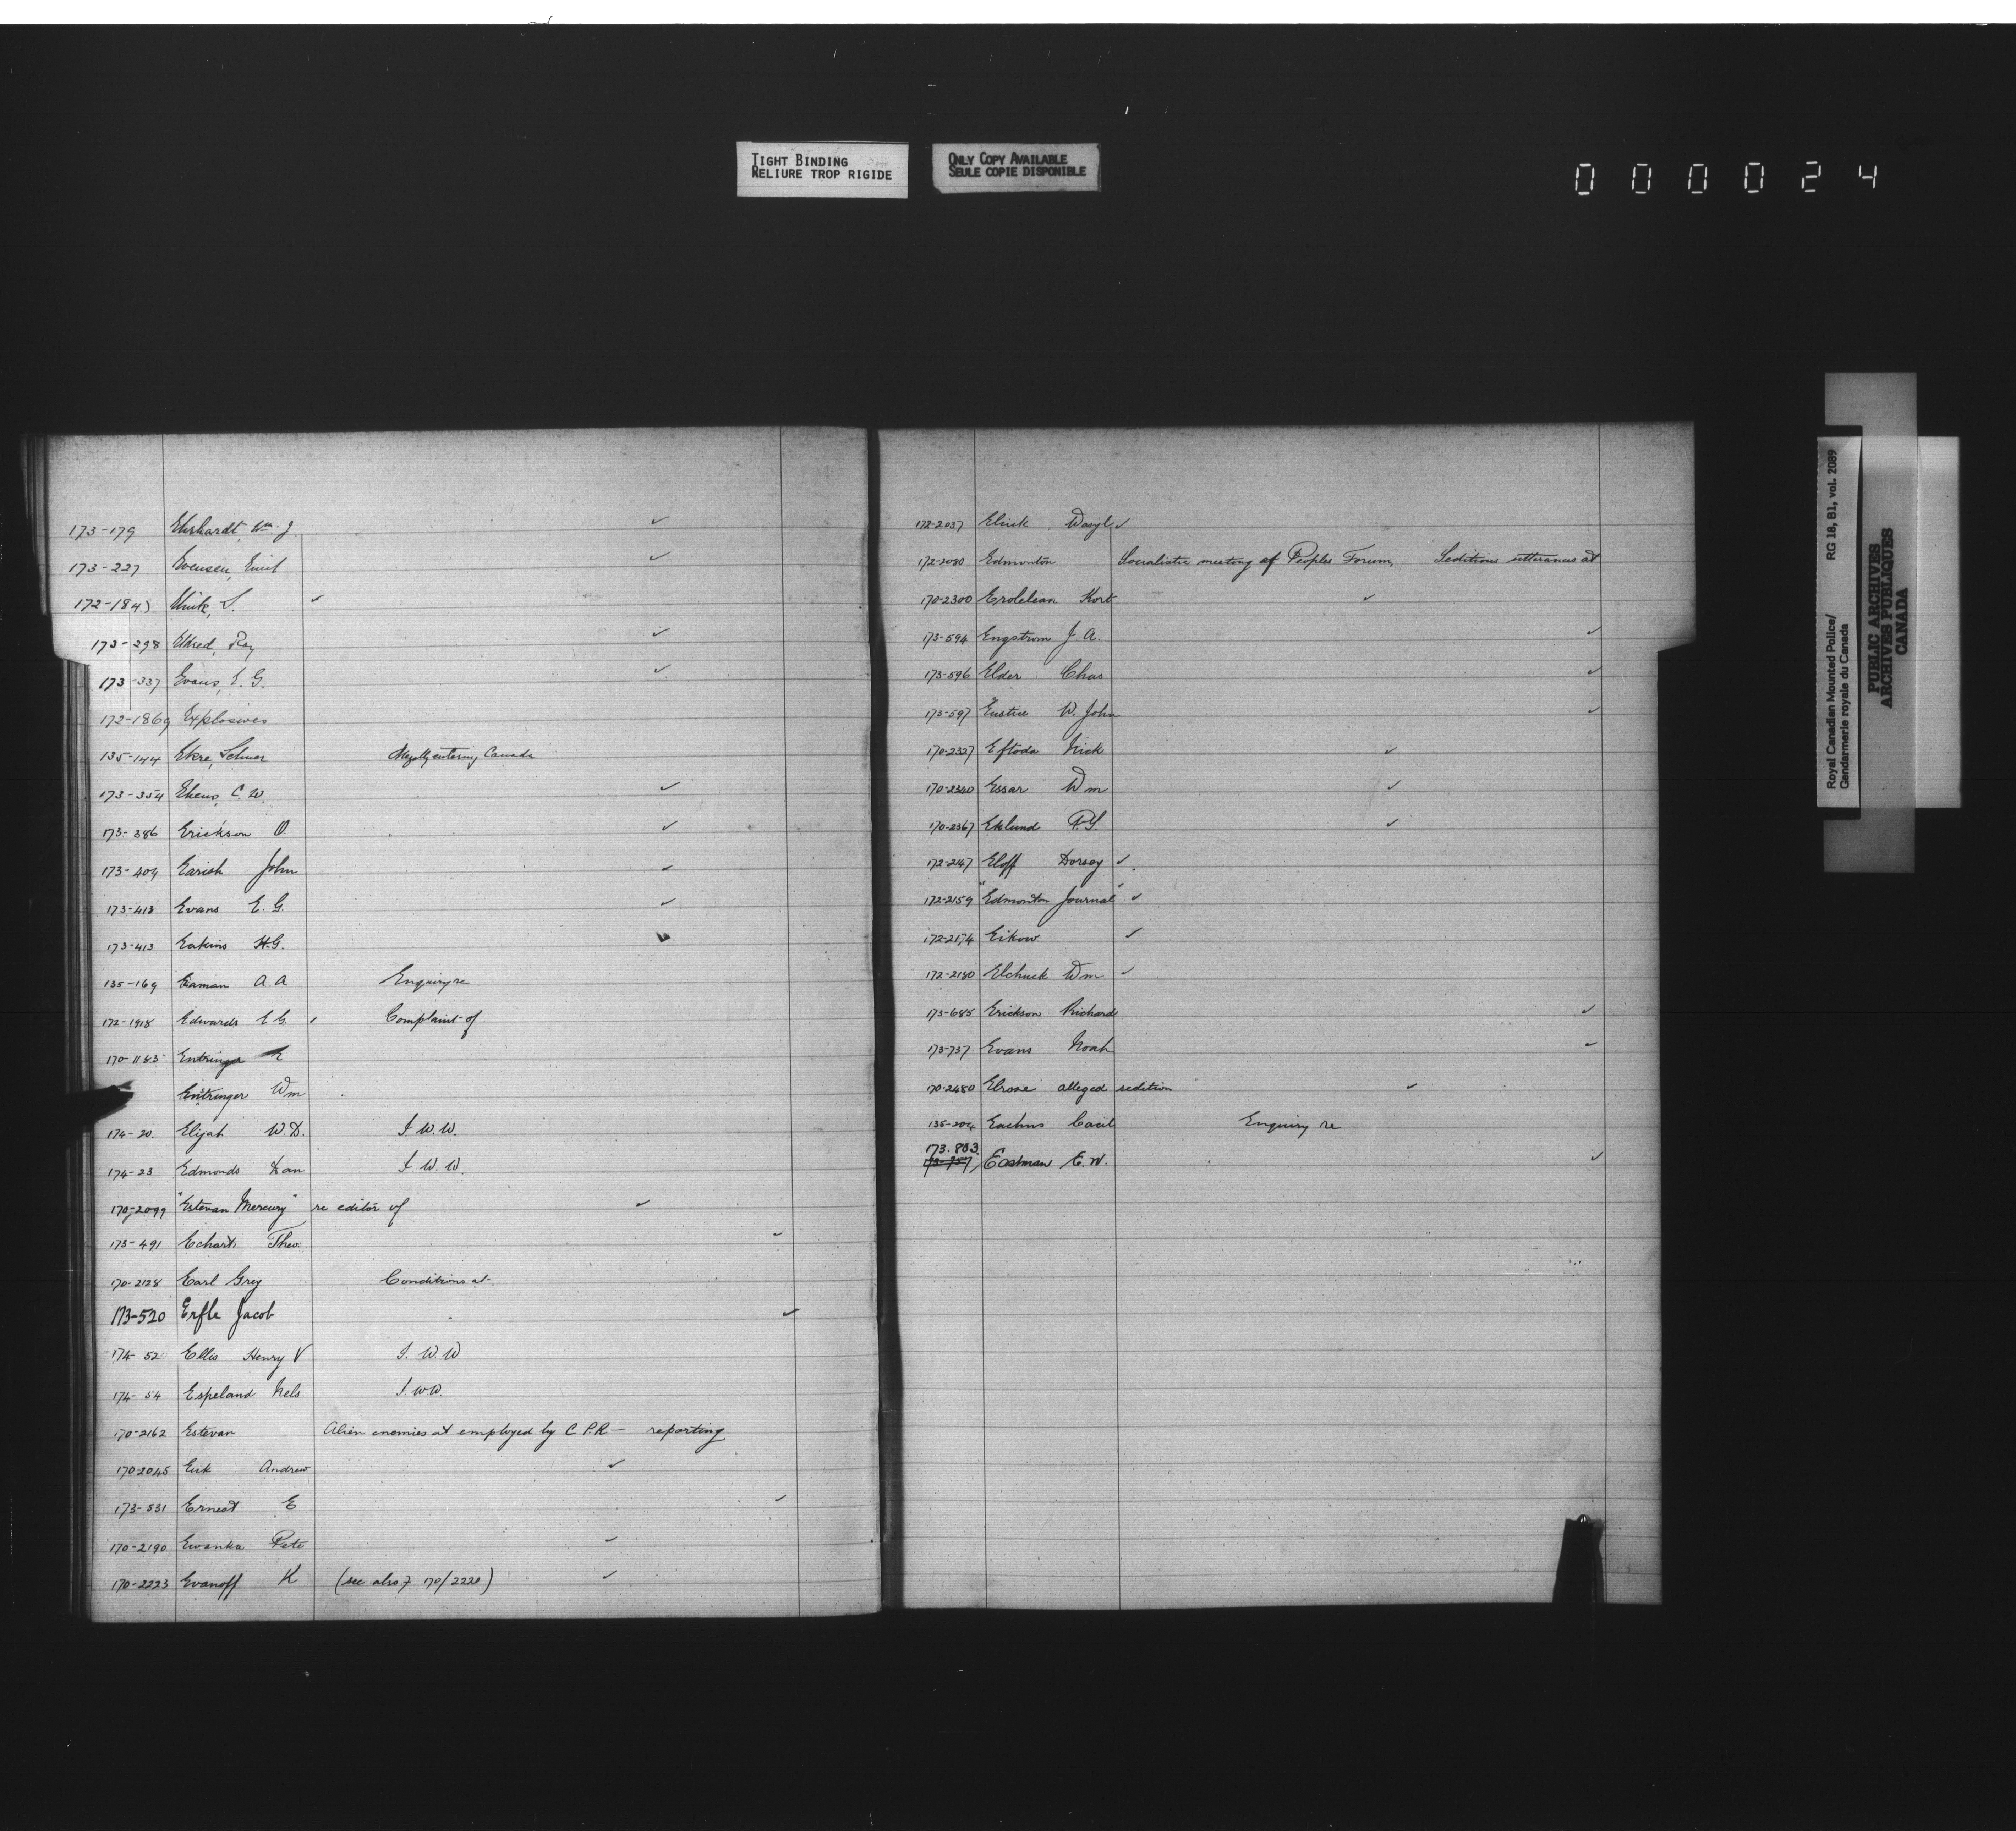 TIGHT BINDING
RELIURE TROP RIGIDE
ONLY COPY AVAILABLE
SEULE COPIE DISPONIBLE
000024
173-179 Ehrhardt, Wm. J. ✓
173-227 Evensen, Emil ✓
172-184 S. ✓
173-298 Eldred, Roy ✓
173-337 Evans, E. G. ✓
172-1869 Explosives
135-144 Ekre, Illegally entering Canada
173-354 Ekens, C. W. ✓
173-386 Erickson O. ✓
173-404 Earish John ✓
173-413 Evans E. G. ✓
173-413 Eakins H.G. ✓
135-169 Eaman A. A Enquiry re
172-1918 Edwards E G. ✓ Complaint of
170-1183 Entringer
Entringer Wm
174-20. Elijah W.D. I. W. W.
174-23 Edmonds Dan I. W. W.
170-2099 "Estevan Mercury" re editor of ✓
173-491 Echart, Theo. ✓
170-2128 Earl Grey Conditions at
173-520 Erfle Jacob ✓
174-52 Ellis Henry V I. W. W
174-54 Espeland Nels I. W.W.
170-2162 Estevan Alien enemies at employed by C P.R — reporting
170-2045 Euk Andrew ✓
173-531 Ernest E ✓
170-2190 Ewanka Pete ✓
170-2223 Evanoff K (see also 170/2220) ✓
172-2037 Elnik Wasyl ✓
172-2080 Edmonton Socialistic meeting of Peoples Forum, Seditious utterances at
170-2300 Erolelean Kort ✓
173-594 Engstrom J. A. ✓
173-596 Elder Chas ✓
173-597 Eustice W. John ✓
170-2327 Eftoda Nick ✓
170-2340 Essar Wm ✓
170-2367 Eklund P.S. ✓
172-2147 Eloff Dorsey ✓
172-2159 "Edmonton Journal" ✓
172-2174 Eikow ✓
172-2180 Elchuck Wm ✓
173-685 Erickson Richard ✓
173-737 Evans Noah ✓
170-2480 Elrose alleged sedition ✓
135-204 Eachus Cecil Enquiry re
173.803
173-757 Eastman E. W. ✓
Royal Canadian Mounted Police/ RG 18, B1, vol. 2089
Gendarmerie royale du Canada
PUBLIC ARCHIVES
ARCHIVES PUBLIQUES
CANADA